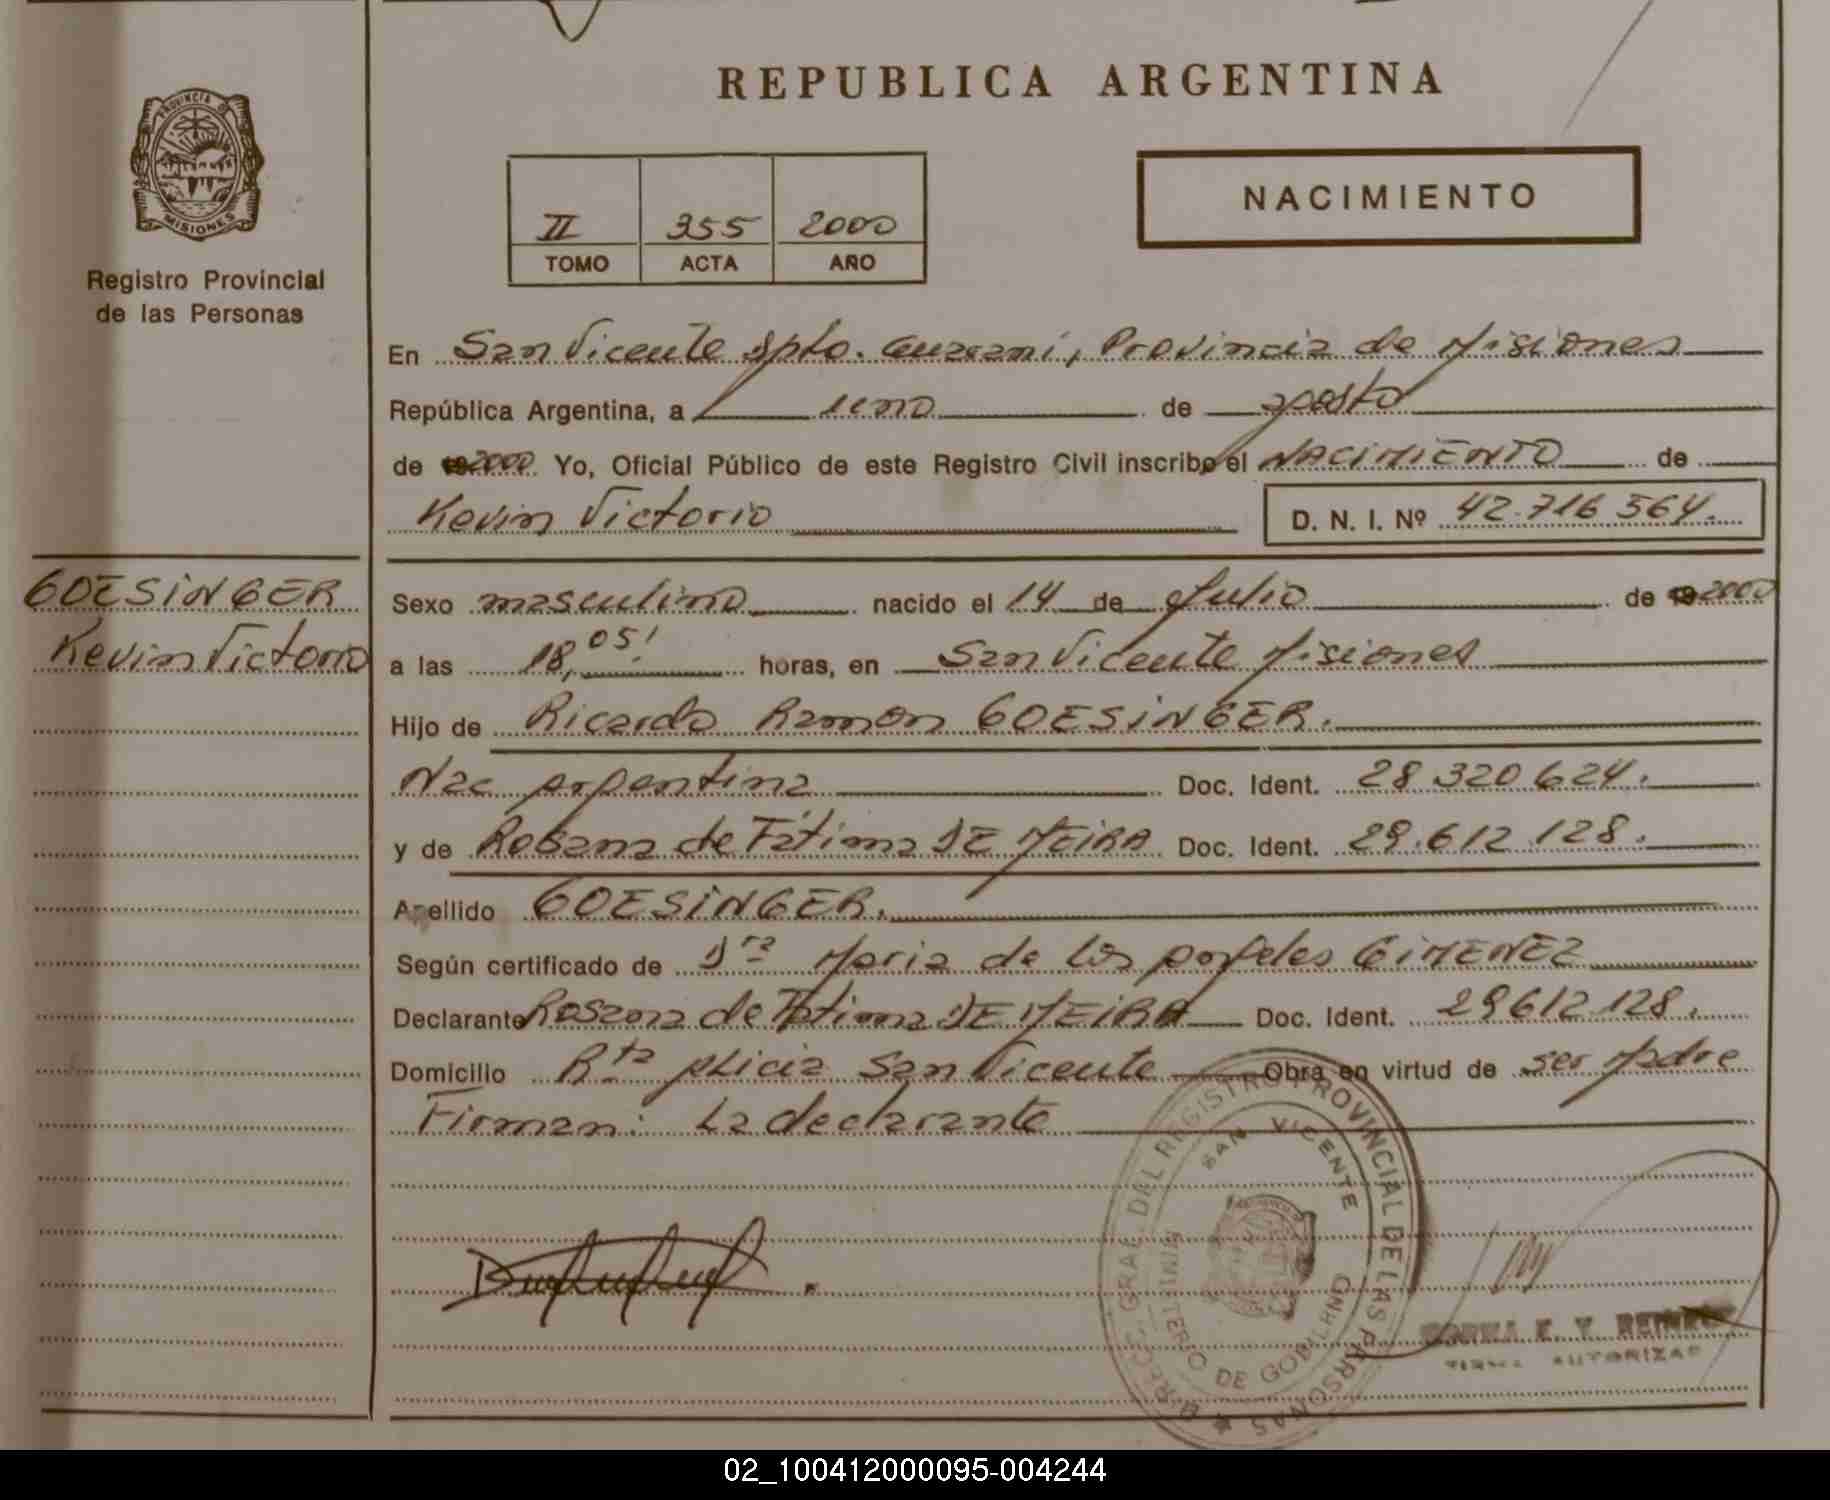 REPUBLICA ARGENTINA
PROVINCIA DE MISIONES
Registro Provincial
de las Personas
NACIMIENTO
II 355 2000
TOMO ACTA AÑO
En San Vicente Dpto. Guarani, Provincia de Misiones
República Argentina, a uno de agosto
de 2000 Yo, Oficial Público de este Registro Civil inscribo el NACIMIENTO de
Kevin Victorio D. N. I. Nº 42.716 564.
GOESINGER
Kevin Victorio
Sexo masculino nacido el 14 de Julio de 2000
a las 18,05' horas, en San Vicente Misiones
Hijo de Ricardo Ramon GOESINGER.
Nac argentina Doc. Ident. 28 320 624.
y de Rosana de Fátima DE MEIRA Doc. Ident. 29.612 128.
Apellido GOESINGER.
Según certificado de Dra Maria de los Angeles GIMENEZ
Declarante Rosana de Fatima DE MEIRA Doc. Ident. 29612 128.
Domicilio Rta policia San Vicente Obra en virtud de ser Madre
Firman: La declarante
DIRECC. GRAL. DEL REGISTRO PROVINCIAL DE LAS PERSONAS
SAN VICENTE
MINISTERIO DE GOBIERNO
FIRMA AUTORIZAD
02_100412000095-004244